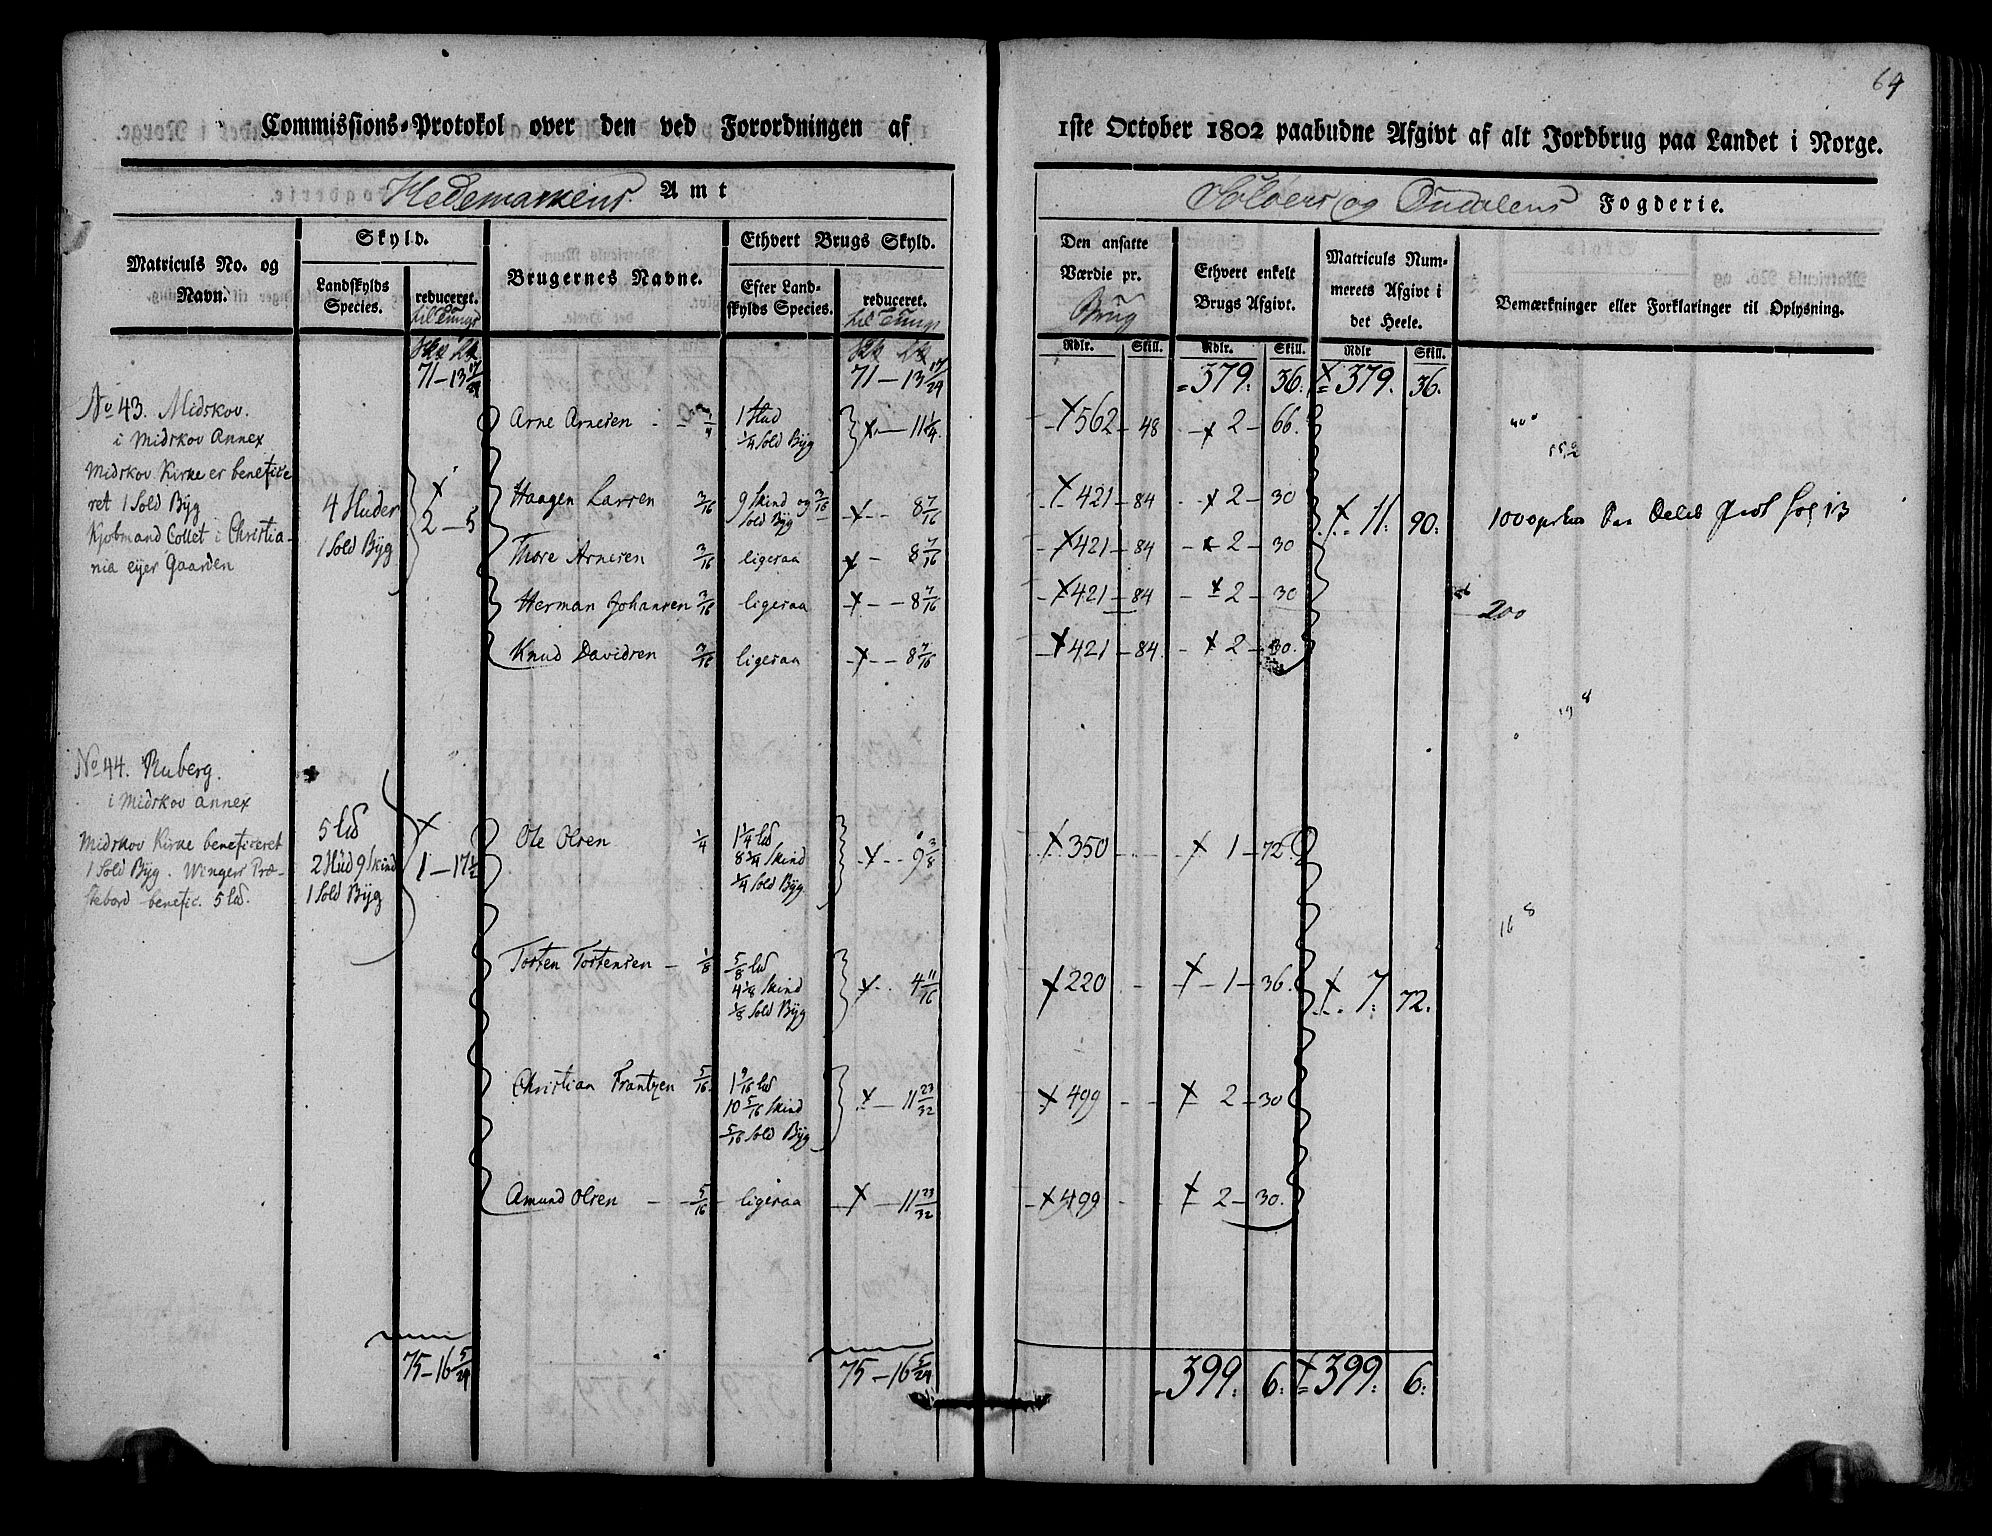 64
Commissions-Protokol over den ved Forordningen af
1ste October 1802 paabudne Afgivt af alt Jordbrug paa Landet i Norge.
Hedemarkens Amt
Soloers og Oudalens Fogderie.
Matriculs No. og Navn.
Skyld.
Landskylds Species.
reduceret. til Tunge
Brugernes Navne.
Ethvert Brugs Skyld.
Efter Landskylds Species.
reduceret. til Tunge
Den ansatte Værdie pr. Brug
Ethvert enkelt Brugs Afgivt.
Matriculs Nummerets Afgivt i det Heele.
Bemærkninger eller Forklaringer til Oplysning.
Rdlr. Skill. Rdlr. Skill. Rdlr Skill.
71 – 13 17/24 71 – 13 17/24 379. 36. 379. 36.
No 43. Midskov.
i Midskov Annex
Midskov Kirke er benefice
ret 1 Sold Byg
Kjobmand Collet i Christia-
nia eyer Gaarden
4 Huder
1 Sold Byg
2 – 5
Arne Arnesen 1/4 1 Hud 1/4 Sold Byg 11 1/4. 562 – 48 2 – 66.
Haagen Larsen 3/16 9 Skind og 3/16 Sold Byg 8 7/16 421 – 84 2 – 30
11: 90:
Thore Arnesen 3/16 ligesaa 8 7/16 421 – 84 2 – 30
Herman Johansen 3/16 ligesaa 8 7/16 421 – 84 2 – 30
200
Knud Davidsen 3/16 ligesaa 8 7/16 421 – 84. 2 – 30.
No 44. Ruberg.
i Midskov annex
Midskov Kirke beneficeret
1 Sold Byg. Wingers Præ-
stebord benefic. 5 ld.
5 ld
2 Hud 9 Skind
1 Sold Byg
1 – 17 1/2
Ole Olsen 1/4 1 1/4 ld 8 1/4 Skind 1/4 Sold Byg 9 3/8 350 1 – 72.
16 8
Tosten Tostensen – 1/8 5/8 ld 4 1/8 Skind 1/8 Sold Byg 4 11/16 220 1 – 36. 7: 72.
Christian Frantzen 5/16 1 9/16 ld 10 5/16 Skind 5/16 Sold Byg 11 23/32 499 2 – 30
Amund Olsen 5/16 ligesaa 11 23/32 499 2 – 30.
75 – 16 5/24 75 – 16 5/24 399. 6. 399. 6.